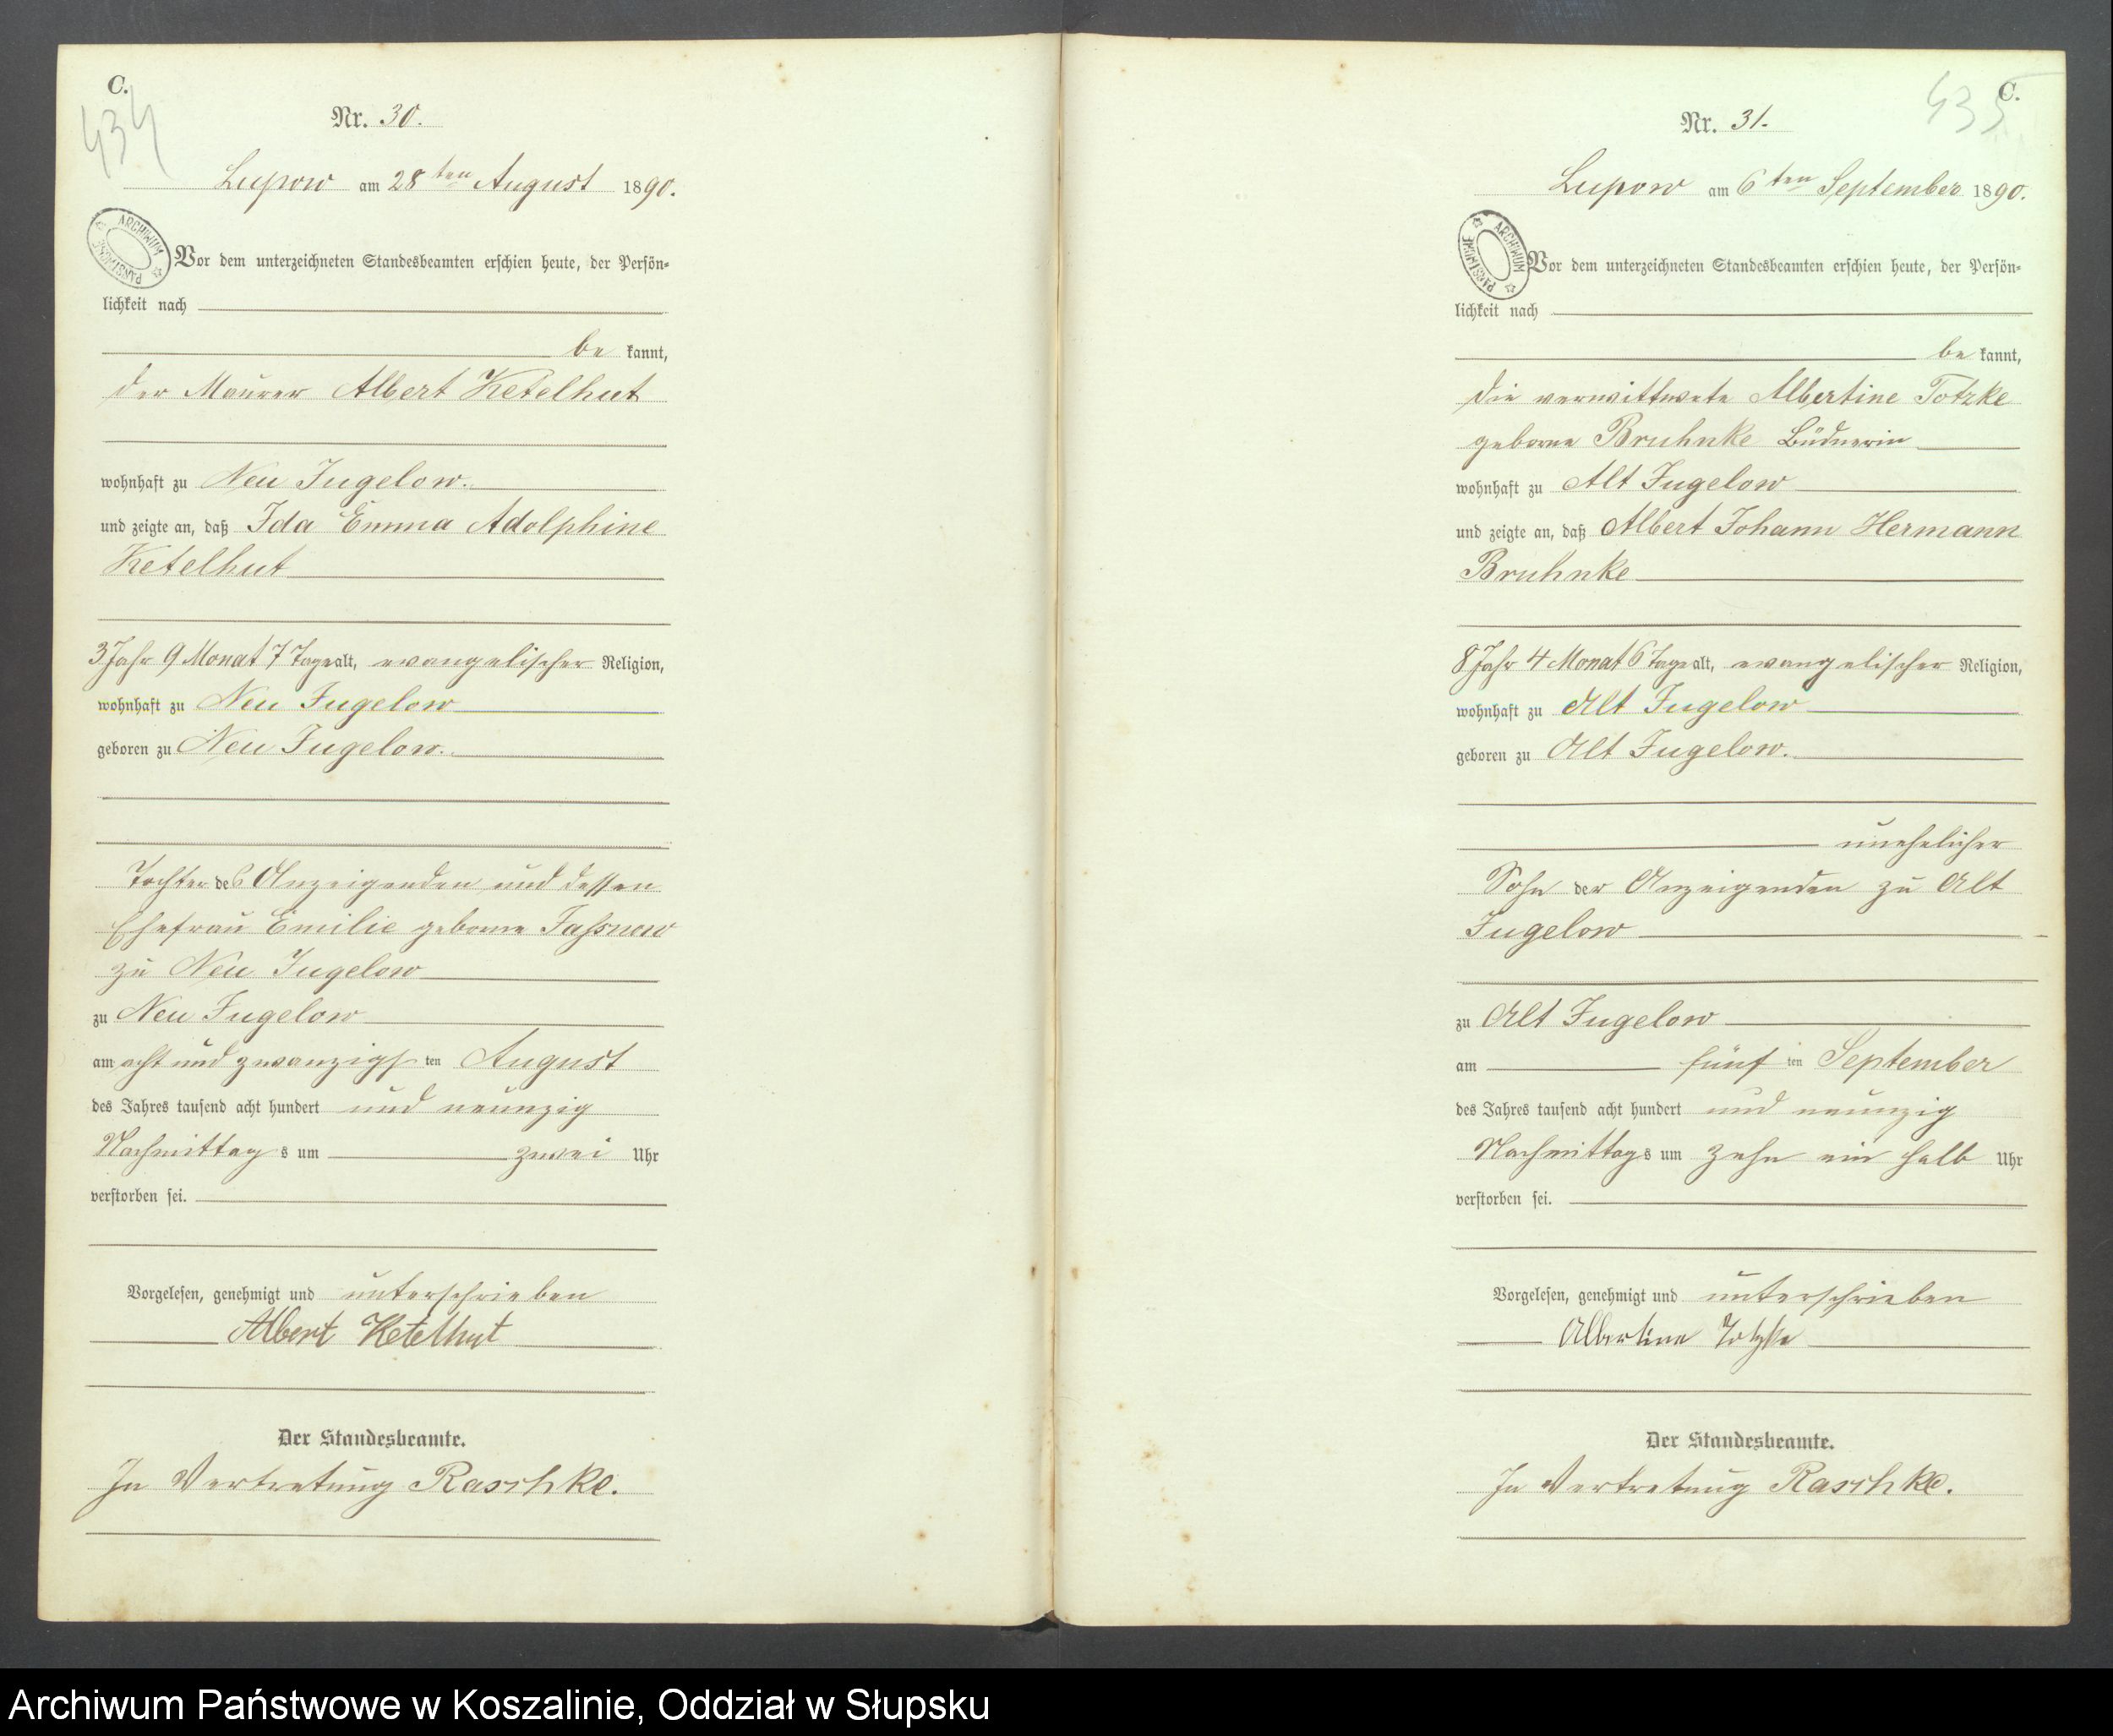 C.
434
Nr. 30.
Lupow am 28ten August 1890.
ARCHIWUM PAŃSTWOWE
Vor dem unterzeichneten Standesbeamten erschien heute, der Persön-
lichkeit nach
be kannt,
der Maurer Albert Ketelhut
wohnhaft zu Neu Jugelow.
und zeigte an, daß Ida Emma Adolphine
Ketelhut
3 Jahr 9 Monat 7 Tage alt, evangelischer Religion,
wohnhaft zu Neu Jugelow
geboren zu Neu Jugelow.
Tochter des Anzeigenden und dessen
Ehefrau Emilie geborne
zu Neu Jugelow
zu Neu Jugelow
am acht und zwanzigsten August
des Jahres tausend acht hundert und neunzig
Nachmittags um zwei Uhr
verstorben sei.
Vorgelesen, genehmigt und unterschrieben
Albert Ketelhut
Der Standesbeamte.
In Vertretung Raschke.
C.
435
Nr. 31.
Lupow am 6ten September 1890.
ARCHIWUM PAŃSTWOWE
Vor dem unterzeichneten Standesbeamten erschien heute, der Persön-
lichkeit nach
be kannt,
die verwittwete Albertine Totzke
geborne Bruhnke Büdnerin
wohnhaft zu Alt Jugelow
und zeigte an, daß Albert Johann Hermann
Bruhnke
8 Jahr 4 Monat 6 Tage alt, evangelischer Religion,
wohnhaft zu Alt Jugelow
geboren zu Alt Jugelow.
unehelicher
Sohn der Anzeigenden zu Alt
Jugelow
zu Alt Jugelow
am fünf ten September
des Jahres tausend acht hundert und neunzig
Nachmittags um zehn ein halb Uhr
verstorben sei.
Vorgelesen, genehmigt und unterschrieben
Albertine Totzke
Der Standesbeamte.
In Vertretung Raschke.
Archiwum Państwowe w Koszalinie, Oddział w Słupsku